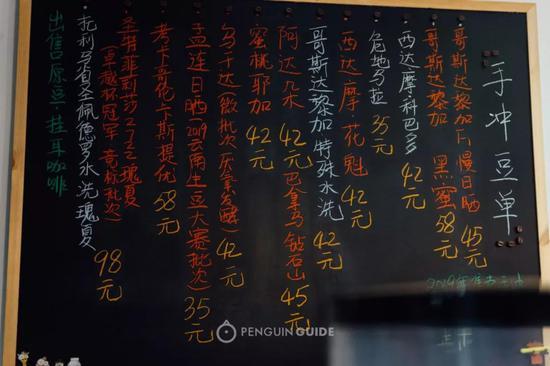 手冲豆单
哥斯达黎加 慢日晒 45元
哥斯达黎加 黑蜜 58元
西达摩·科巴多 42元
危地马拉 35元
西达摩·花魁 42元
哥斯达黎加特殊水洗 42元
阿达几水 42元 巴拿马钻石山 45元
蜜桃耶加 42元
乌干达(微批次/厌氧发酵) 42元
孟连日晒(2019云南生豆大赛批次) 35元
考卡哥伦卡斯提优 58元
圣特菲莉莎2722瑰夏
(卓越杯冠军 竞标批次)
托利马省圣佩德罗水洗瑰夏 98元
出售原豆·挂耳咖啡
PENGUIN GUIDE